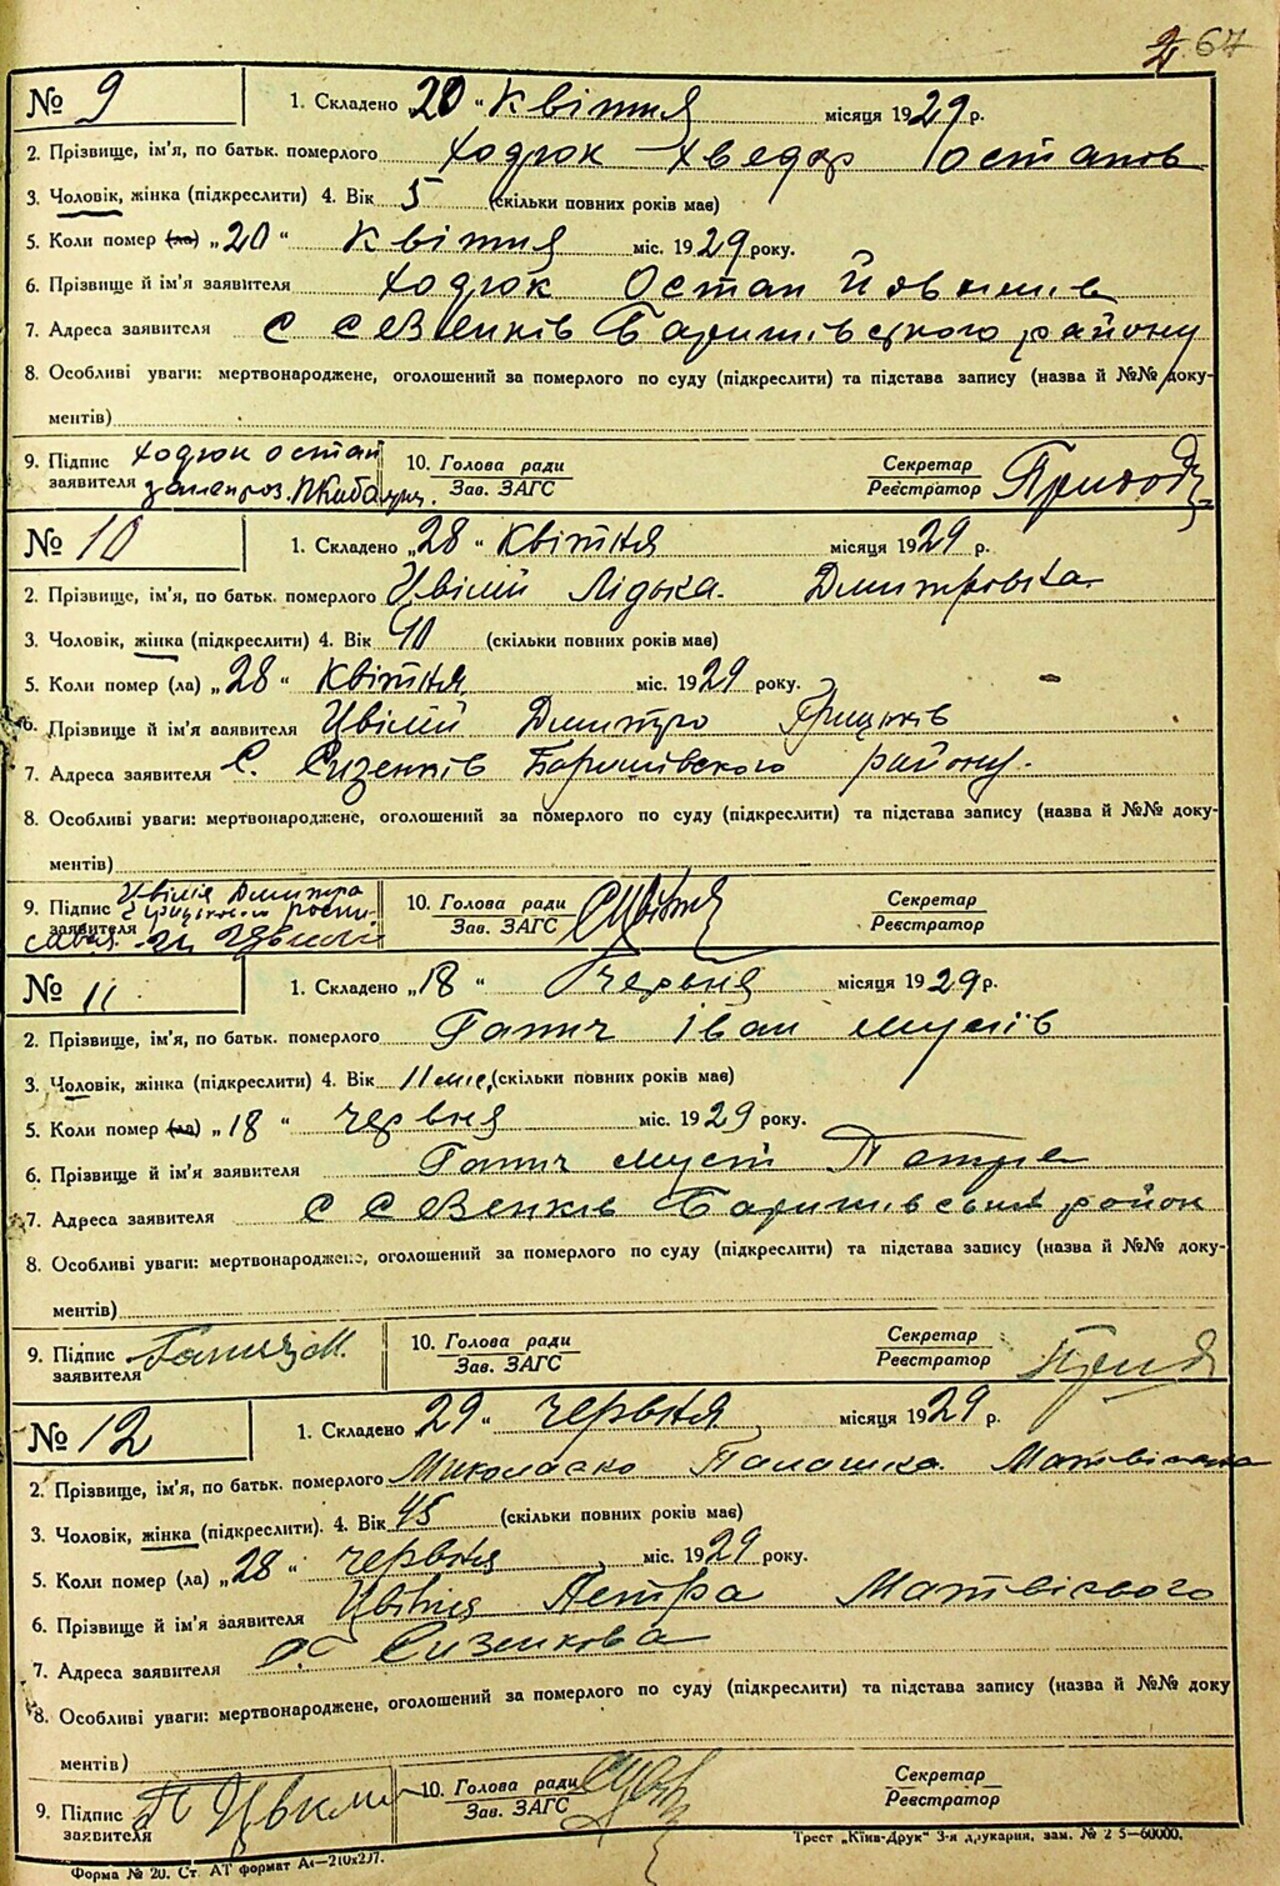 67
№ 9 1. Складено „20“ Квітня місяця 1929 р.
2. Прізвище, ім'я, по батьк. померлого Ходюк Хведор Остапов
3. Чоловік, жінка (підкреслити) 4. Вік 5 (скільки повних років має)
5. Коли помер (ла) „20“ Квітня міс. 1929 року.
6. Прізвище й ім'я заявителя Ходюк Остап
7. Адреса заявителя С Севенків Баришівського району
8. Особливі уваги: мертвонароджене, оголошений за померлого по суду (підкреслити) та підстава запису (назва й №№ доку-
ментів)
9. Підпис заявителя Ходюк Остап
10. Голова ради Зав. ЗАГС
Секретар Реєстратор
№ 10 1. Складено „28“ Квітня місяця 1929 р.
2. Прізвище, ім'я, по батьк. померлого Цвілий Лідька Дмитровна
3. Чоловік, жінка (підкреслити) 4. Вік 10 (скільки повних років має)
5. Коли помер (ла) „28“ Квітня міс. 1929 року.
6. Прізвище й ім'я заявителя Цвілий Дмитро Грицьків
7. Адреса заявителя С. Сизенків Баришівського району.
8. Особливі уваги: мертвонароджене, оголошений за померлого по суду (підкреслити) та підстава запису (назва й №№ доку-
ментів)
9. Підпис заявителя Цвілія Дмитра
10. Голова ради Зав. ЗАГС
Секретар Реєстратор
№ 11 1. Складено „18“ Червня місяця 1929 р.
2. Прізвище, ім'я, по батьк. померлого Гапич Іван Мусіїв
3. Чоловік, жінка (підкреслити) 4. Вік 11 міс. (скільки повних років має)
5. Коли помер (ла) „18“ червня міс. 1929 року.
6. Прізвище й ім'я заявителя Гапич Мусій Петра
7. Адреса заявителя С Севенків Баришівський район
8. Особливі уваги: мертвонароджене, оголошений за померлого по суду (підкреслити) та підстава запису (назва й №№ доку-
ментів)
9. Підпис заявителя Гапич М.
10. Голова ради Зав. ЗАГС
Секретар Реєстратор
№ 12 1. Складено „29“ червня місяця 1929 р.
2. Прізвище, ім'я, по батьк. померлого Миколаєнко Палашка
3. Чоловік, жінка (підкреслити). 4. Вік 45 (скільки повних років має)
5. Коли помер (ла) „28“ червня міс. 1929 року.
6. Прізвище й ім'я заявителя Петра
7. Адреса заявителя с. Сизенкова
8. Особливі уваги: мертвонароджене, оголошений за померлого по суду (підкреслити) та підстава запису (назва й №№ доку
ментів)
9. Підпис заявителя
10. Голова ради Зав. ЗАГС
Секретар Реєстратор
Форма № 20. Ст. АТ формат А4—210х297.
Трест „Київ-Друк“ 3-я друкарня, зам. № 2 5—60000.